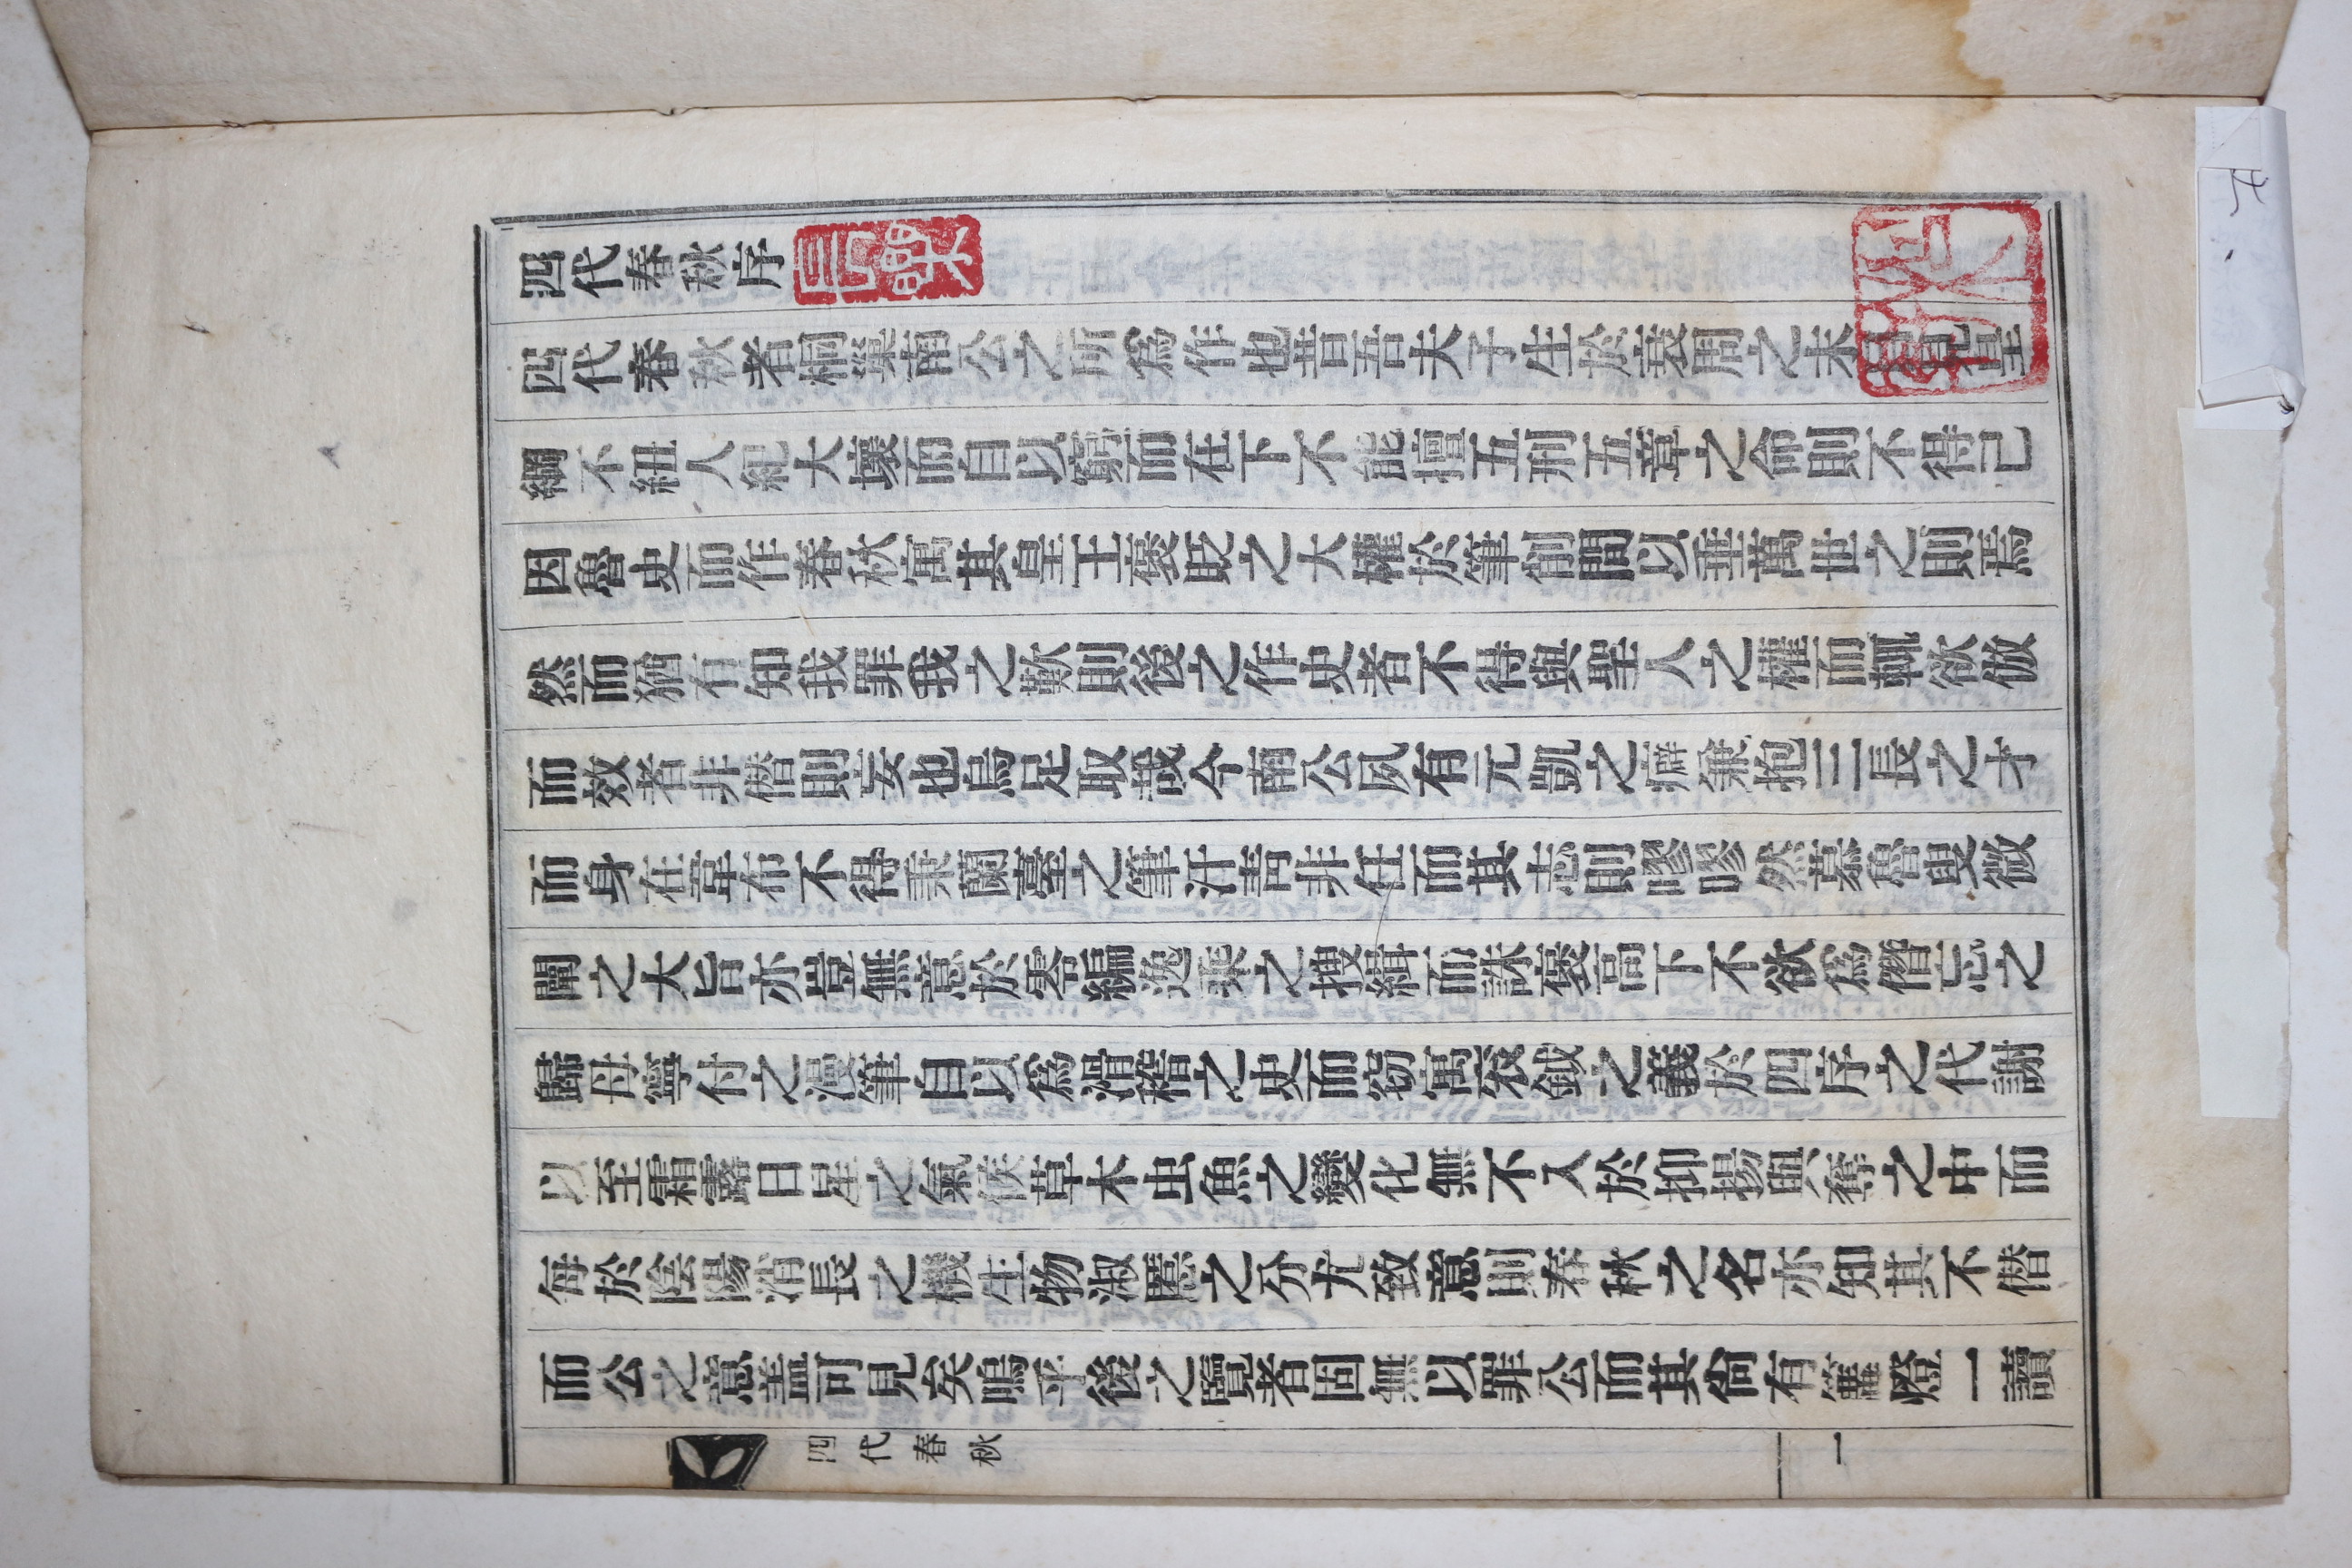 四代春秋序
四代春秋者桐巢南公之所爲作也昔吾夫子生於衰周之末目見皇
綱不紐人紀大壞而自以窮而在下不能擅五刑五章之命則不得已
因魯史而作春秋寓其皇王褒貶之大權於筆削間以垂萬世之則焉
然而猶有知我罪我之歎則後之作史者不得與聖人之權而輒欲倣
而效者非僭則妄也烏足取哉今南公夙有元凱之癖兼抱三長之才
而身在韋布不得秉蘭臺之筆汗靑非任而其志則嘐嘐然慕魯叟微
闡之大旨亦豈無意於零編逸乘之搜緝而誅褒高下不欲爲僭忘之
歸母寧付之漫筆自以爲滑稽之史而窃寓袞鉞之義於四序之代謝
以至霜露日星之氣候草木虫魚之變化無不入於抑揚與奪之中而
每於陰陽消長之機生物淑慝之分尤致意則春秋之名亦知其不僭
而公之意盖可見矣嗚乎後之覽者固無以罪公而其尙有篝燈一讀
四代春秋
一
長樂